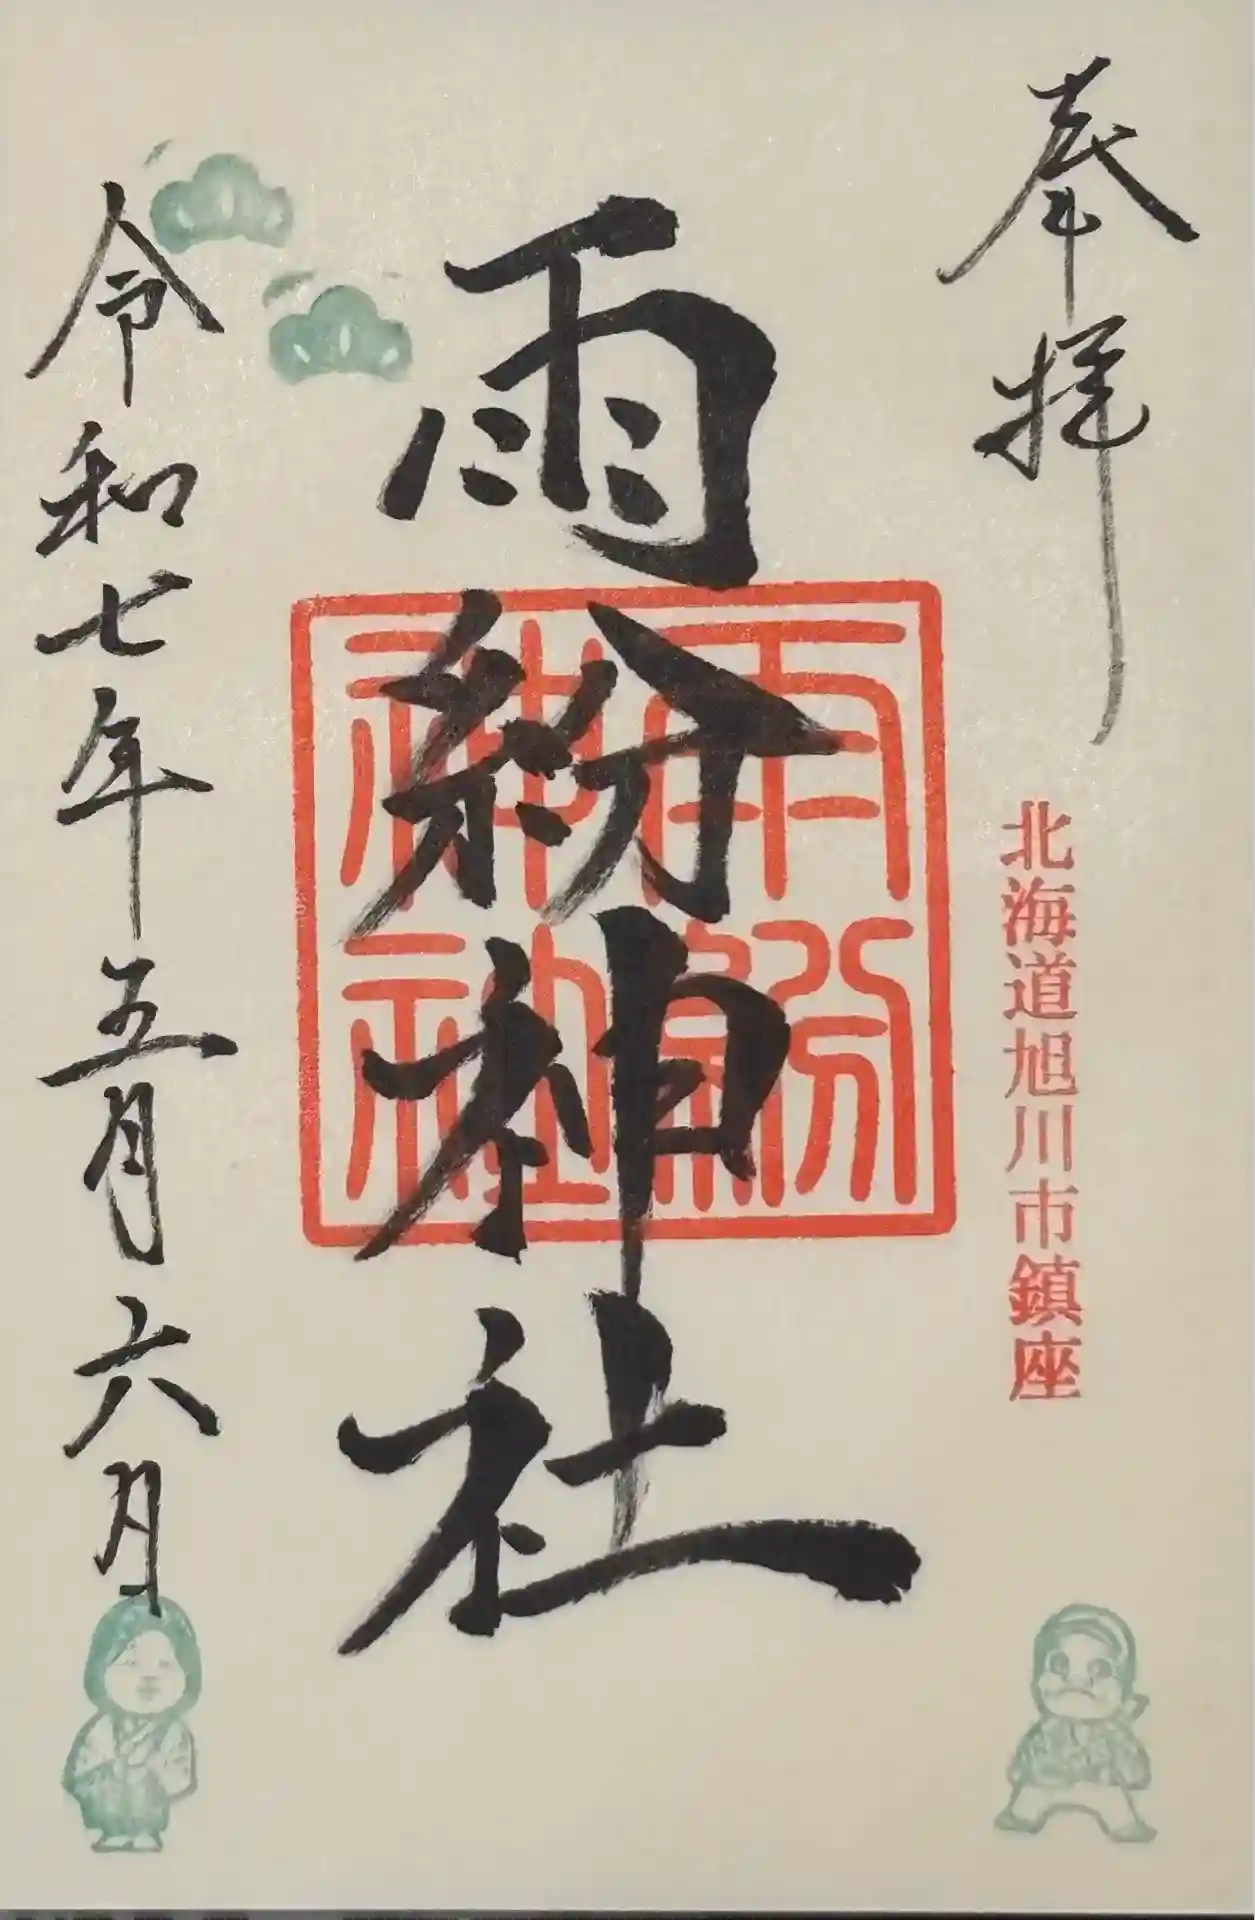 奉拝
北海道旭川市鎮座
雨紛神社
雨紛神社
令和七年五月六日